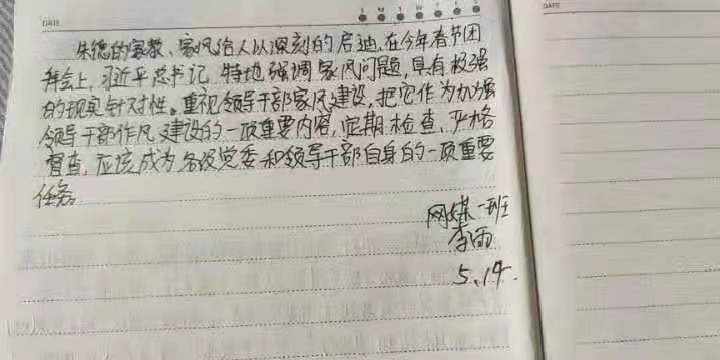 DATE
S M T W T F S
DATE
朱德的家教、家风给人以深刻的启迪,在今年春节团
拜会上,习近平总书记,特地强调家风问题,具有极强
的现实针对性。重视领导干部家风建设,把它作为加强
领导干部作风建设的一项重要内容,定期检查、严格
督查,应该成为各级党委和领导干部自身的一项重要
任务。
网媒一班
李雨
5.14.